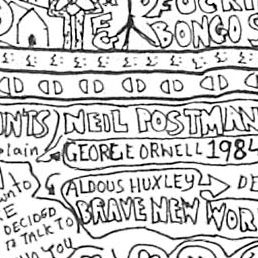 DUCKI
BONGOS
UNTS NEIL POSTMAN
plain GEORGE ORWELL 1984
ALDOUS HUXLEY → DE
BRAVE NEW WOR
DECIDED
TO TALK TO
YOU